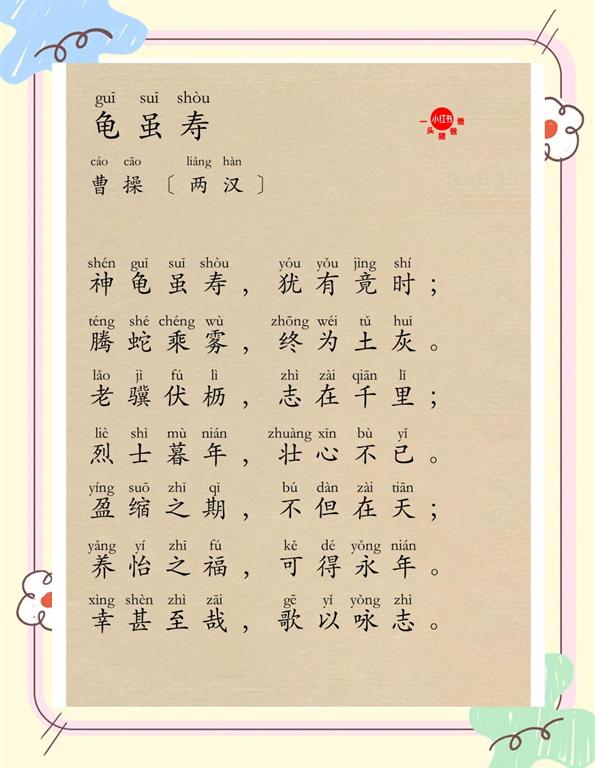 guī suī shòu
龟虽寿
小红书
一头猪爸爸
cáo cāo liǎng hàn
曹操〔两汉〕
shén guī suī shòu yóu yǒu jìng shí
神龟虽寿，犹有竟时；
téng shé chéng wù zhōng wéi tǔ huī
腾蛇乘雾，终为土灰。
lǎo jì fú lì zhì zài qiān lǐ
老骥伏枥，志在千里；
liè shì mù nián zhuàng xīn bù yǐ
烈士暮年，壮心不已。
yíng suō zhī qī bú dàn zài tiān
盈缩之期，不但在天；
yǎng yí zhī fú kě dé yǒng nián
养怡之福，可得永年。
xìng shèn zhì zāi gē yǐ yǒng zhì
幸甚至哉，歌以咏志。